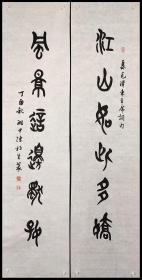 毛澤東主席詞句
江山如此多嬌
風景這邊獨好
丁酉秋